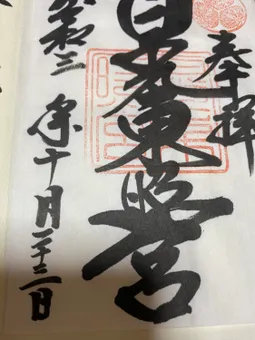 奉拝
日光東照宮
令和二年十月二十三日